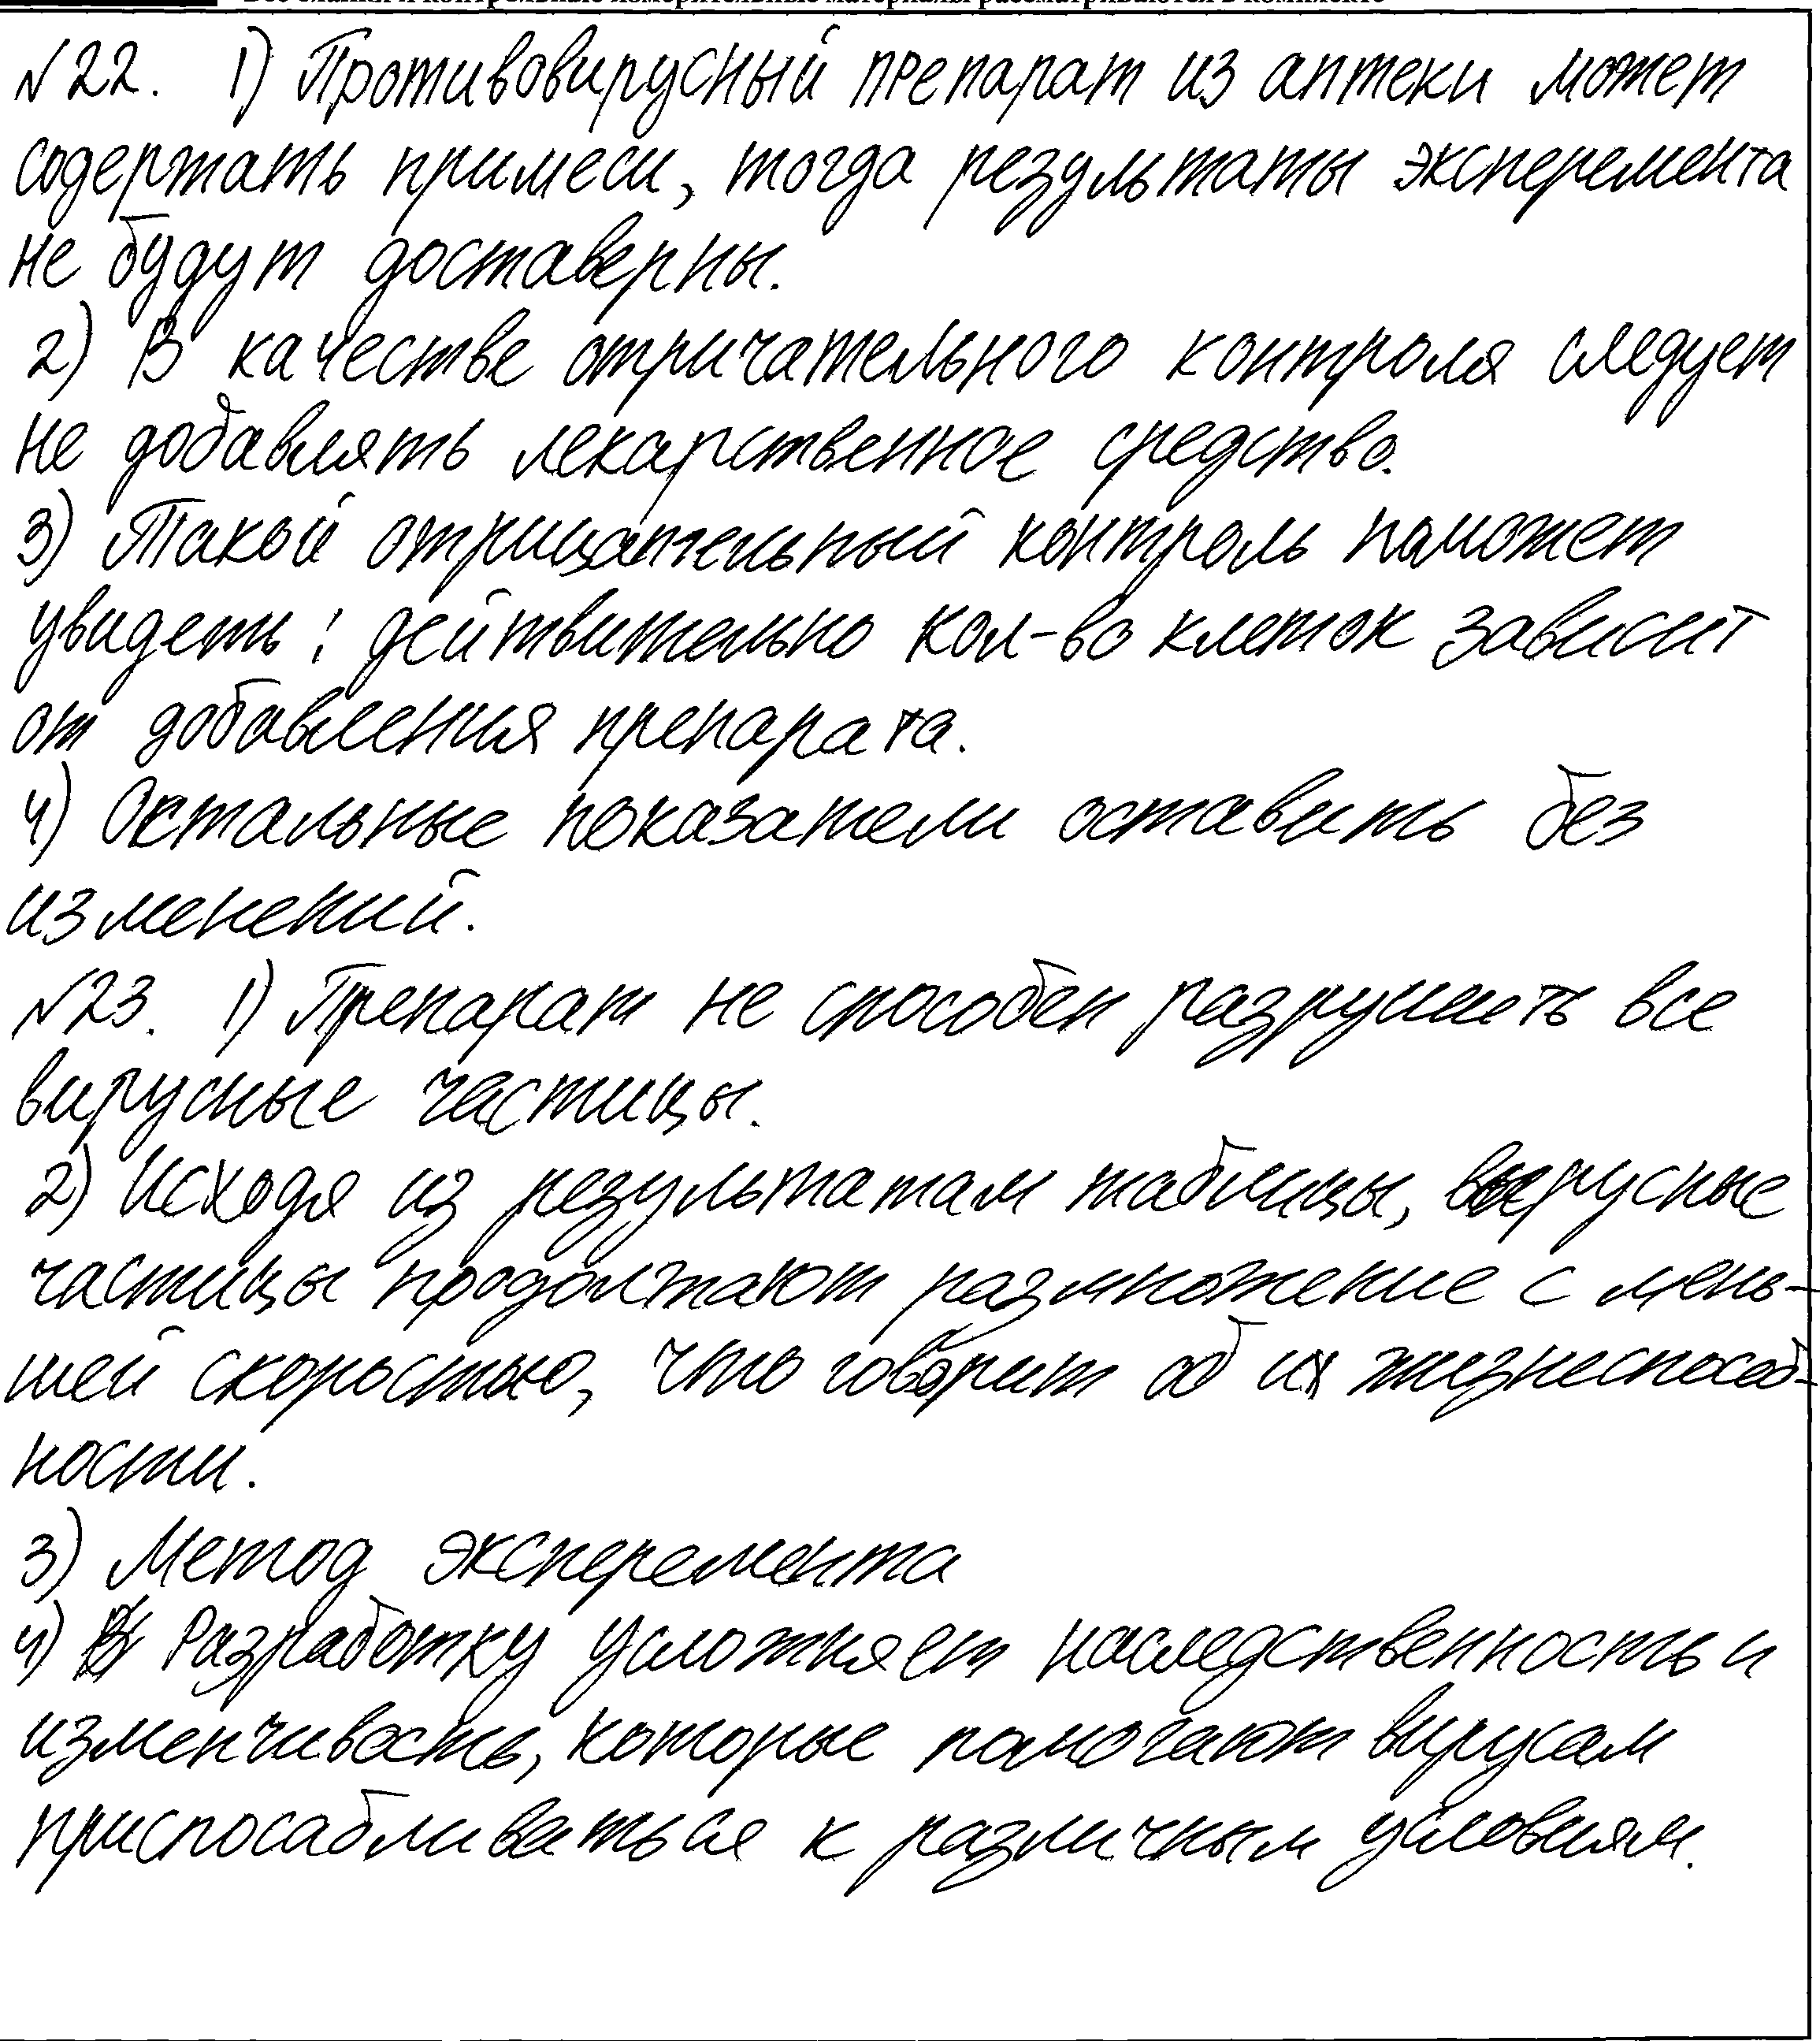 Все бланки и контрольные измерительные материалы рассматриваются в комплекте
№22. 1) Противовирусный препарат из аптеки может
содержать примеси, тогда результаты эксперемента
не будут доставерны.
2) В качестве отричательного контроля следует
не добавлять лекарственное средство.
3) Такой отрицательный контроль паможет
увидеть: действительно кол-во клеток зависит
от добавления препарата.
4) Остальные показатели оставить без
изменений.
№23. 1) Препарат не способен разрушить все
вирусные частицы.
2) Исходя из результатам таблицы, вирусные
частицы продолжают размножение с мень-
шей скоростью, что говорит об их жизнеспособ-
ности.
3) Метод эксперемента
4) Разработку усложняет наследственность и
изменчивость, которые помогают вирусам
приспосабливаться к различным условиям.